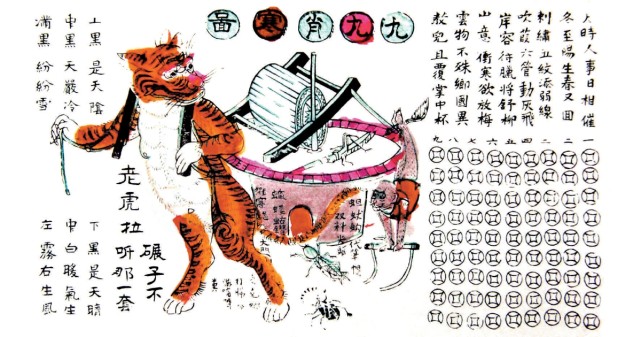 九九肖寒啚
天時人事日相催
冬至陽生春又回
刺繡五紋添弱線
吹葭六管動灰飛
岸容待臘將舒柳
山意衝寒欲放梅
雲物不殊鄉國異
教兒且覆掌中杯
一 二 三 四 五 六 七 八 九
上黑是天陰
中黑天嚴冷
滿黑紛紛雪
下黑是天晴
中白暖氣生
左霧右生風
老虎拉
碾子不
听那一套